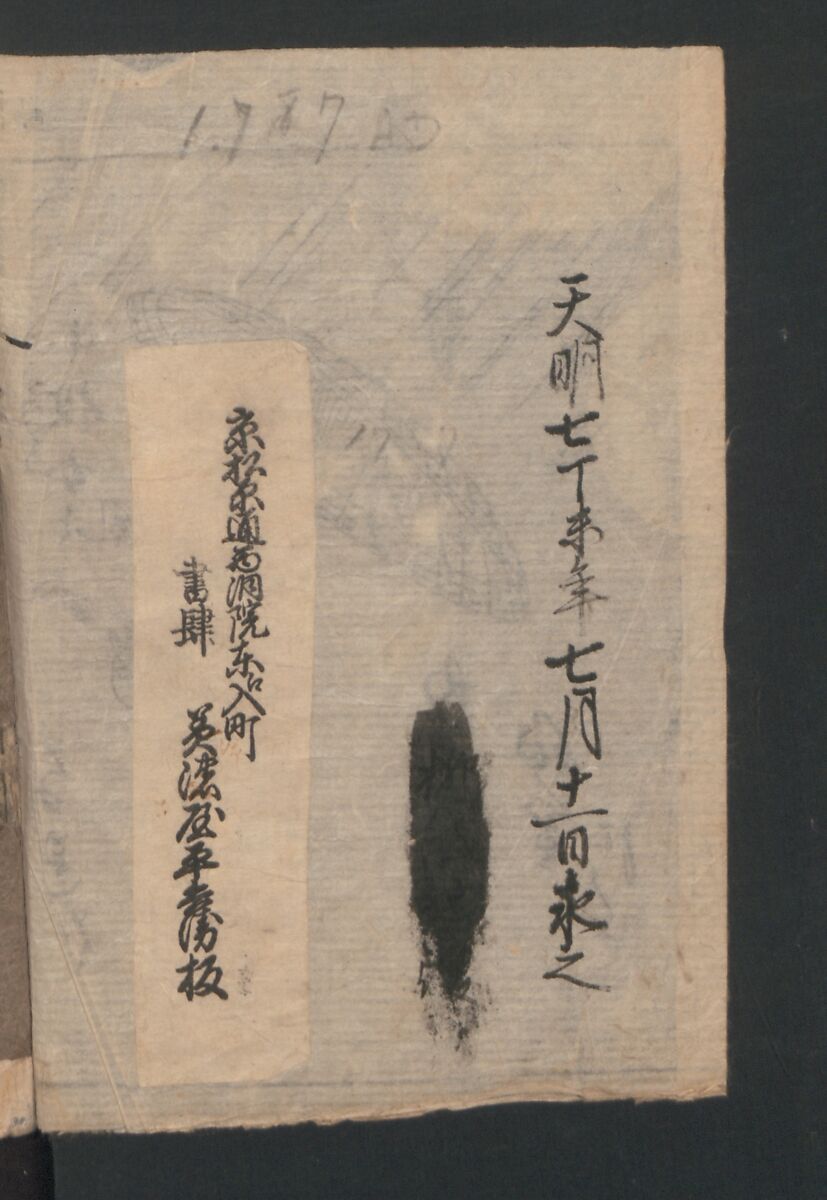 天明七丁未年七月十一日求之
京松原通西洞院東に入町
書肆 美濃屋平兵衛板